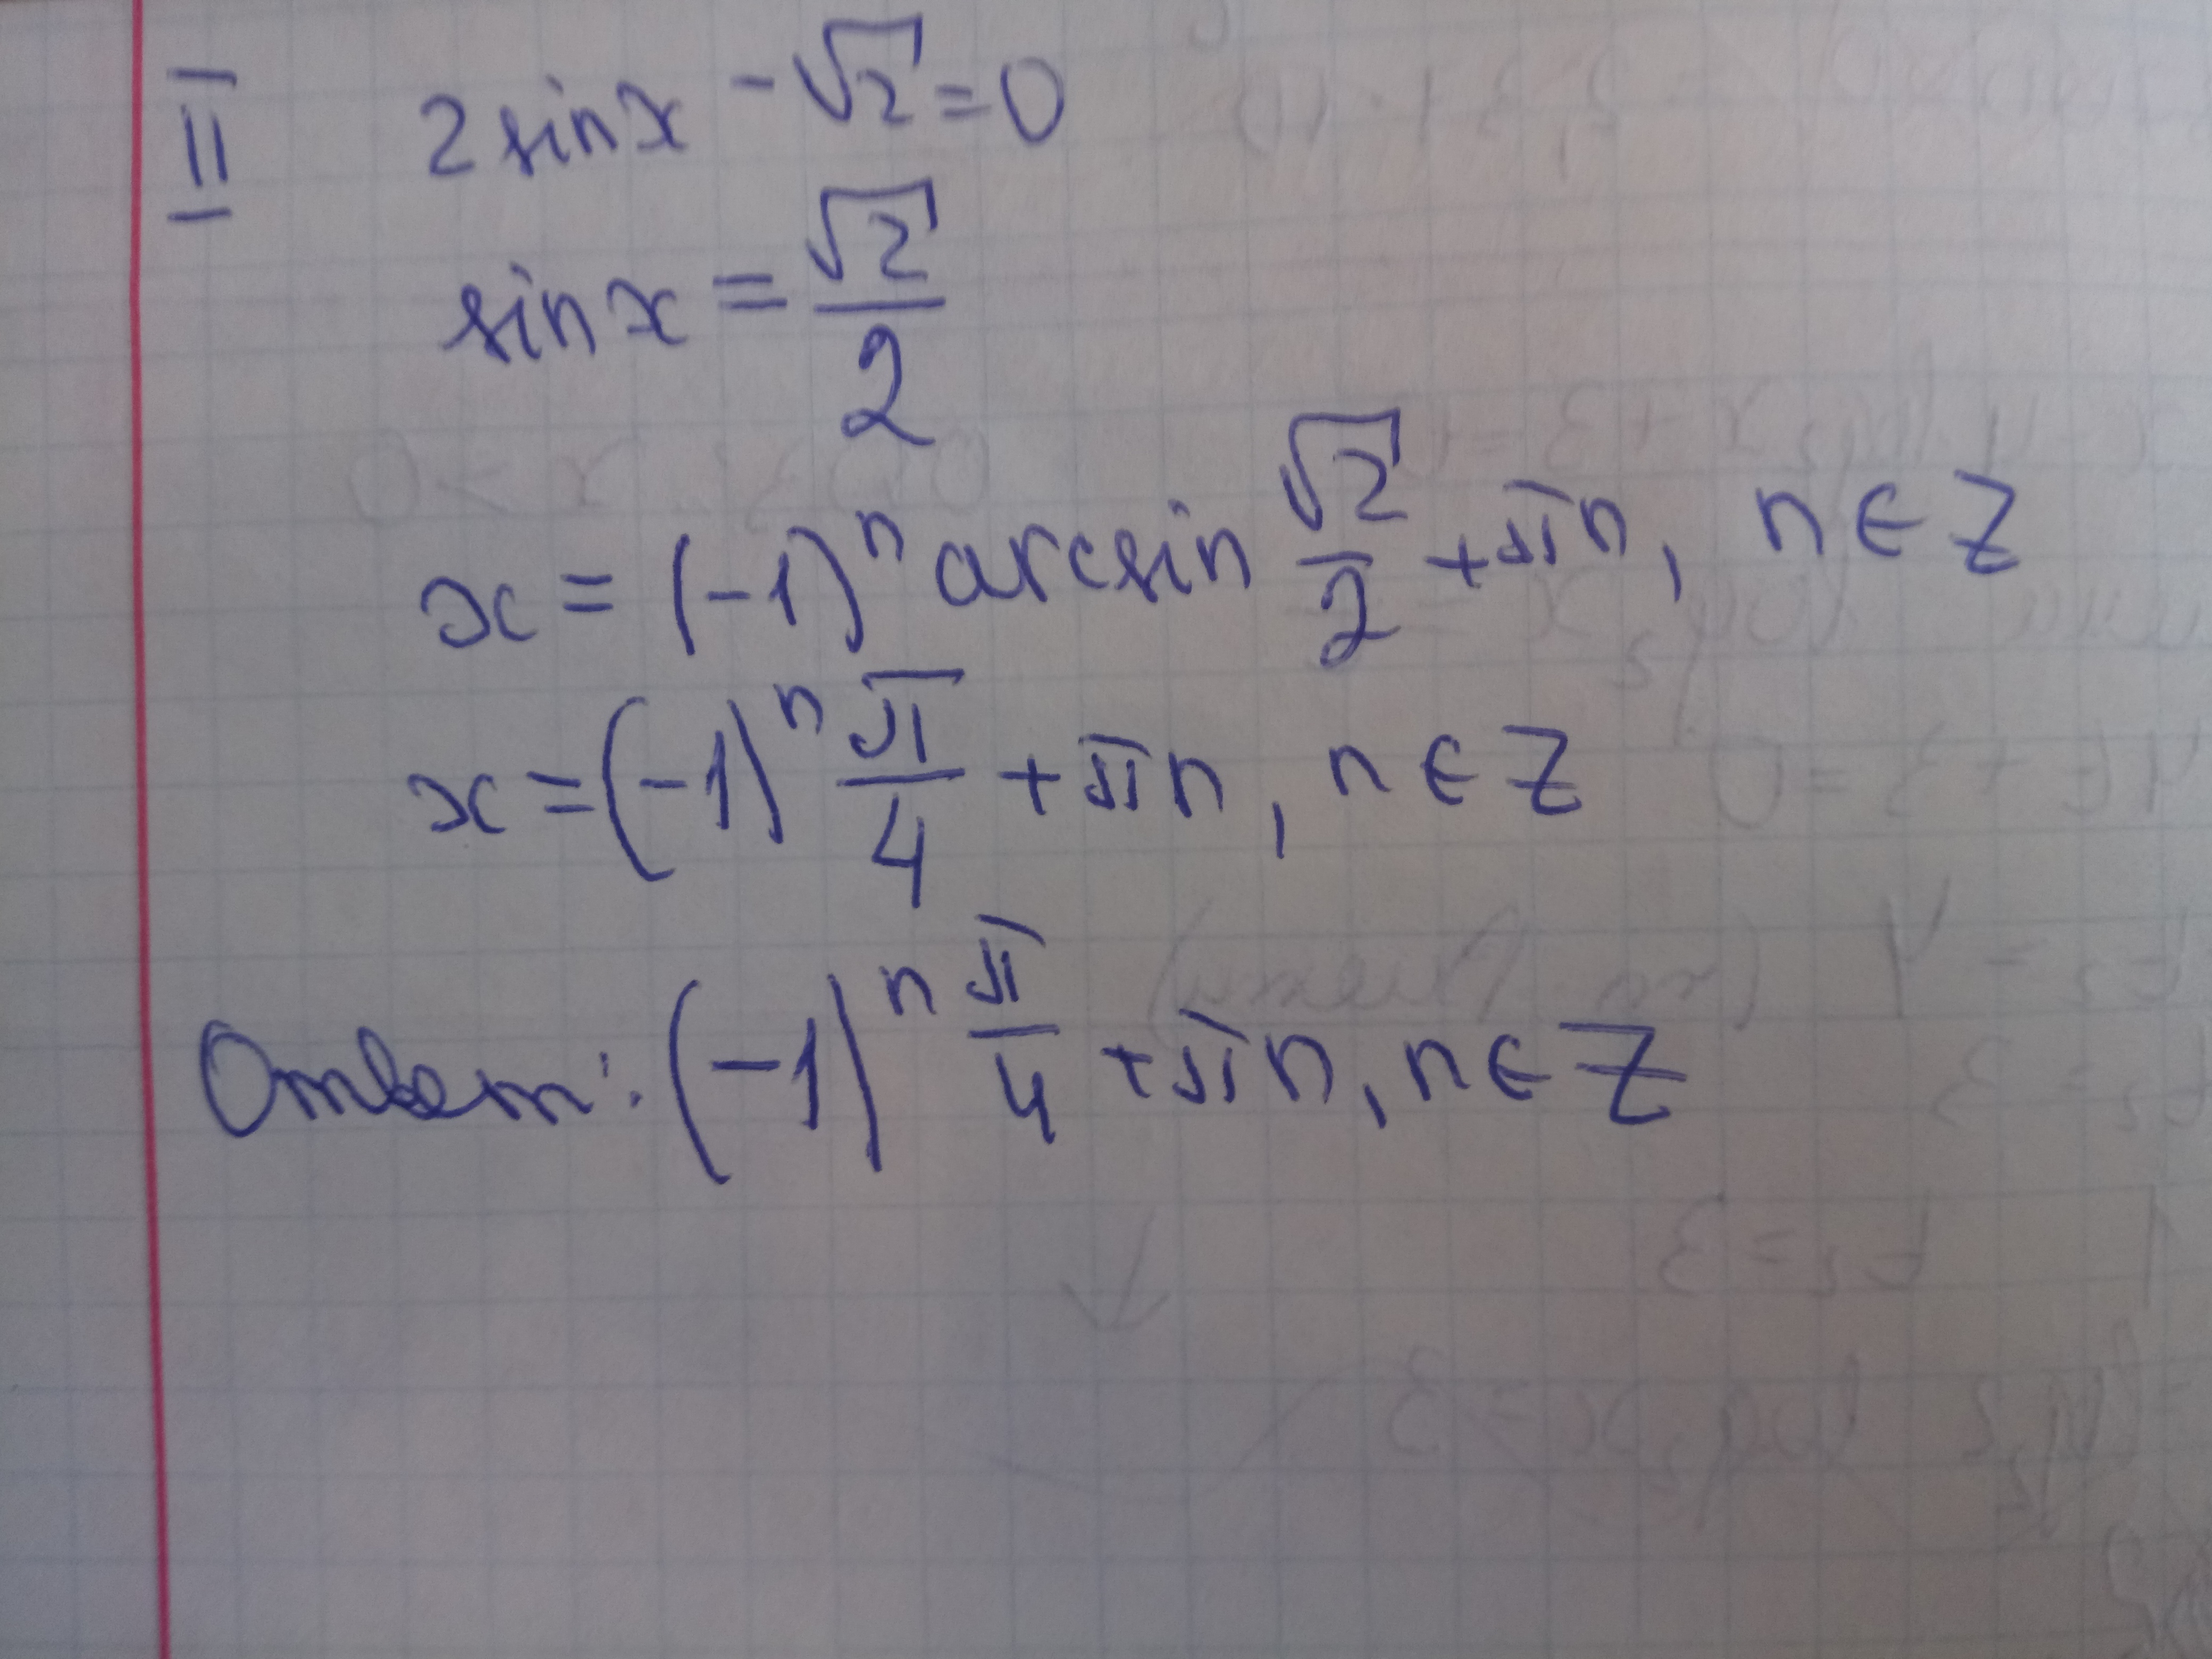 II 2 sin x - √2 = 0
sin x = √2/2
x = (-1)ⁿ arcsin √2/2 + πn, n ∈ Z
x = (-1)ⁿ π/4 + πn, n ∈ Z
Ответ: (-1)ⁿ π/4 + πn, n ∈ Z